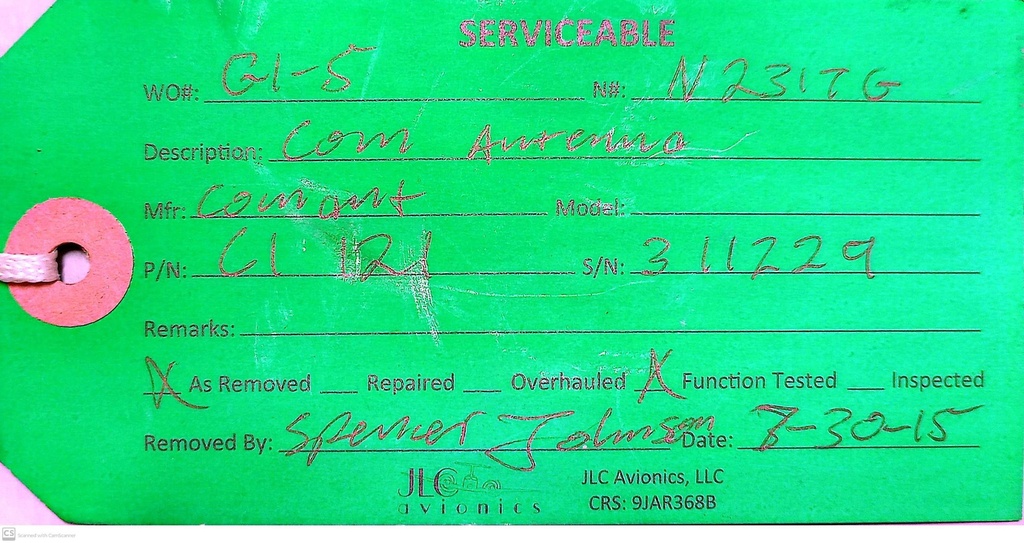 SERVICEABLE
WO#: G1-5 N#: N231TG
Description: Com Antenna
Mfr: Comant Model:
P/N: CI 121 S/N: 311229
Remarks:
X As Removed ___ Repaired ___ Overhauled X Function Tested ___ Inspected
Removed By: Spencer Johnson Date: 7-30-15
JLC avionics
JLC Avionics, LLC
CRS: 9JAR368B
CS Scanned with CamScanner